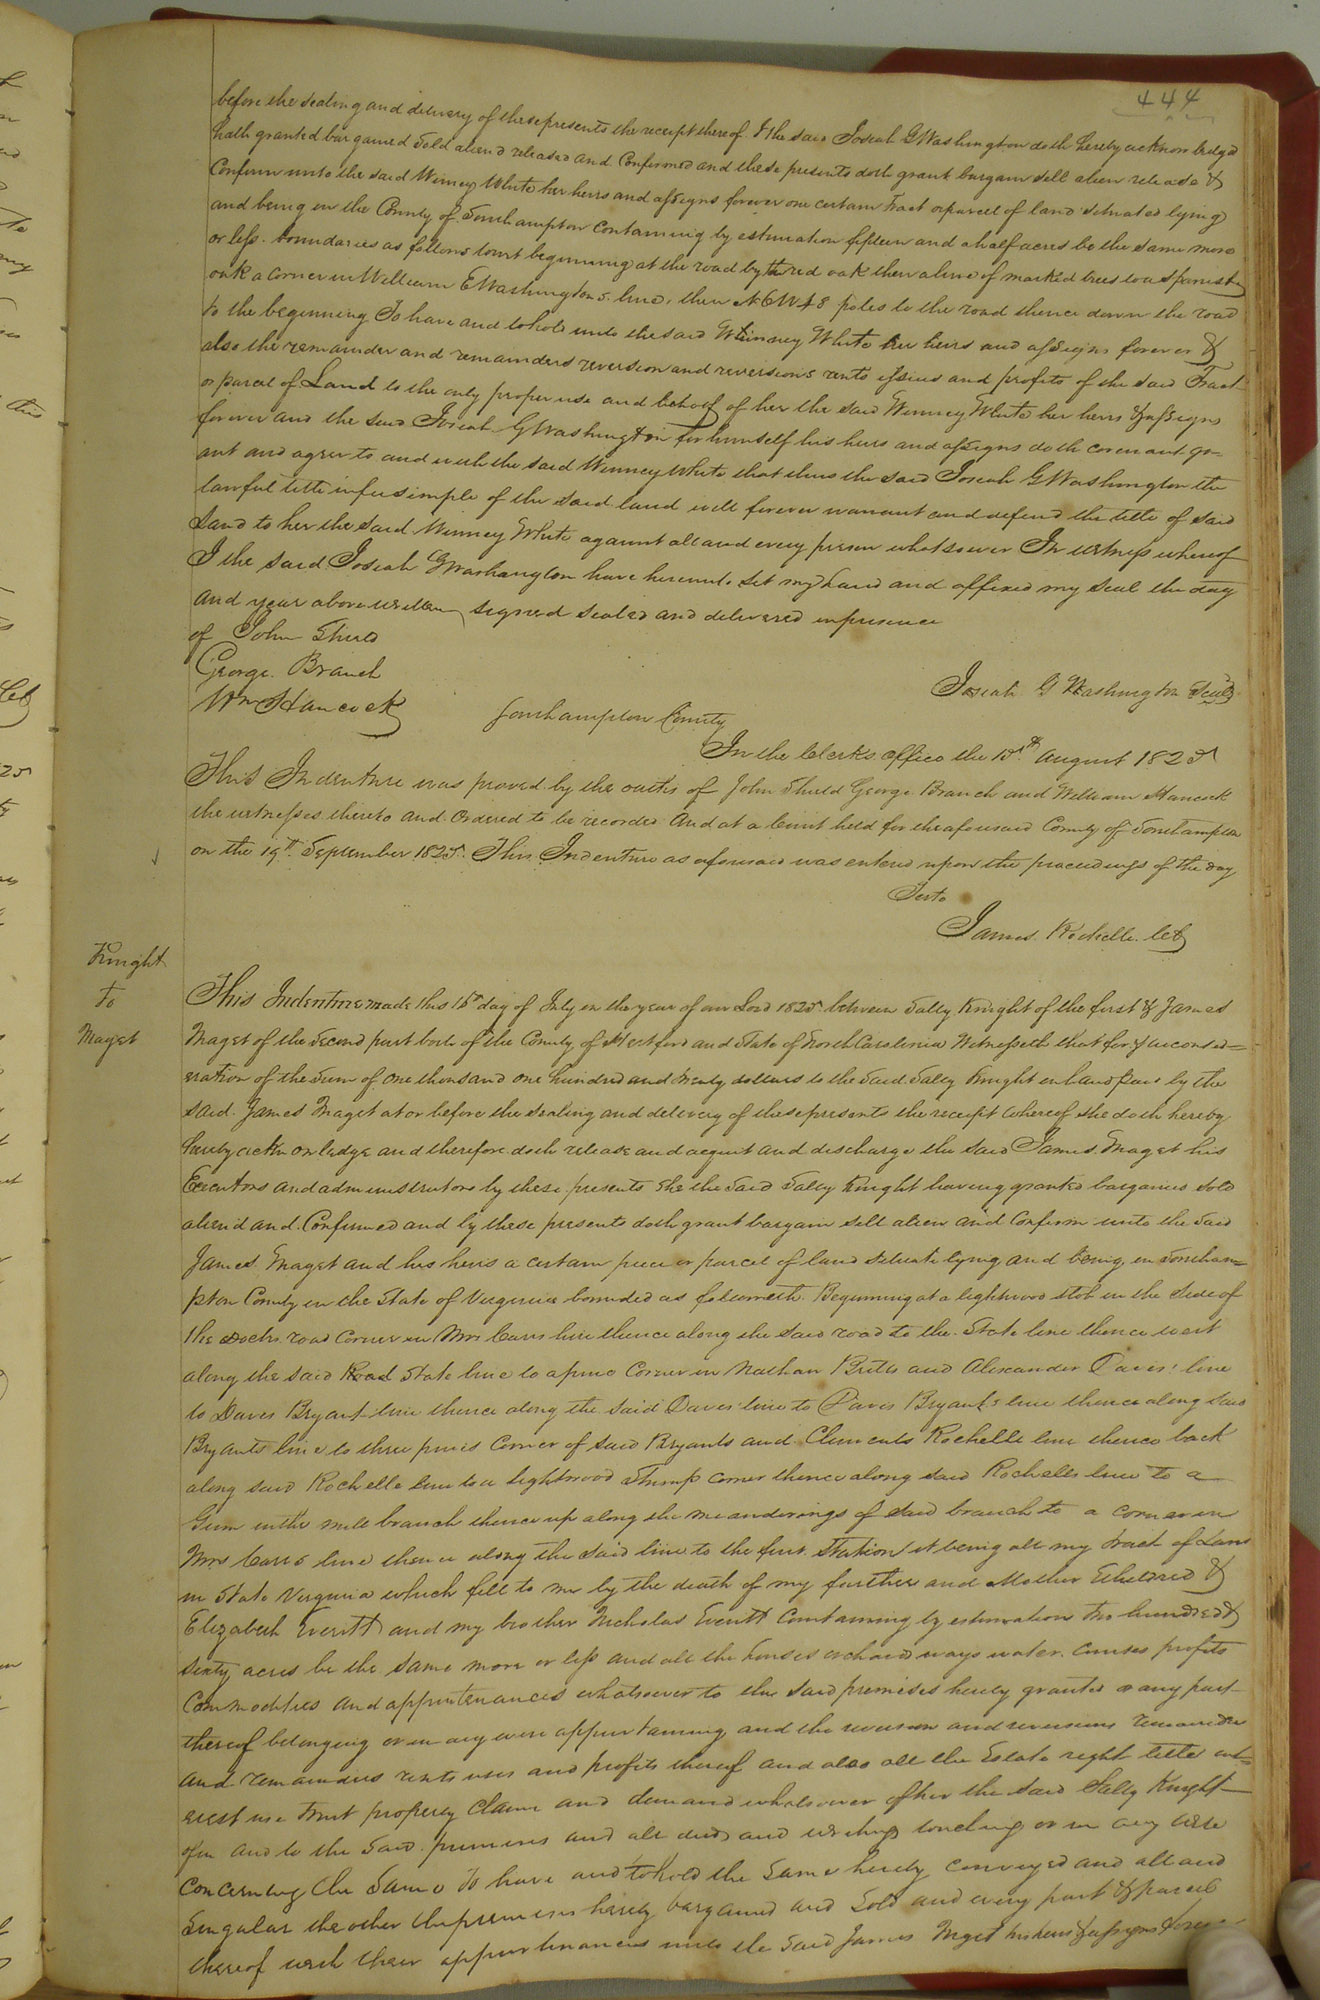 444
before the sealing and delivery of these presents the receipt thereof I the said Josiah G Washington doth hereby acknowledged
hath granted bargained sold aliend released and Confirmed and these presents doth grant bargain sell alien release &
Confirm unto the said Winney White her heirs and assigns forever one certain Tract or parcel of land situated lying
and being in the County of Southampton Containing by estimation fifteen and a half acres be the same more
or less. boundaries as follows towit beginning at the road by the red oak then a line of marked trees to a Spanish
oak a corner in William E Washingtons line, then N 6 W 48 poles to the road thence down the road
to the beginning To have and to hold unto the said Winney White her heirs and assigns forever &
also the remainder and remainders reversion and reversions rents issues and profits of the said Tract
or parcel of Land to the only proper use and behoof of her the said Winney White her heirs & assigns
forever and the said Josiah G Washington for himself his heirs and assigns doth covenant gr=
ant and agree to and with the said Winney White that the said Josiah G Washington the
lawful title in fee simple of the said land will forever warrant and defend the title of said
Land to her the said Winney White against all and every person whatsoever In witness whereof
I the said Josiah G Washington have hereunto set my hand and affixed my seal the day
and year above written signed sealed and delivered in presence
of John Shield
George Branch
Wm Hancock
Josiah G Washington Seal
Southampton County
In the Clerks office the 15th August 1825
This Indenture was proved by the oaths of John Shield George Branch and William Hancock
the witnesses thereto and Ordered to be recorded And at a Court held for the aforesaid County of Southampton
on the 19th September 1825. This Indenture as aforesaid was entered upon the proceedings of the day
Teste
James Rochelle. Clk
Knight
To
Maget
This Indenture made this 15th day of July in the year of our Lord 1825 between Sally Knight of the first & James
Maget of the Second part both of the County of Hertford and State of North Carolinia Witnesseth that for & in consid=
eration of the Sum of One thousand one hundred and twenty dollars to the Said Sally Knight in hand paid by the
said James Maget at or before the sealing and delivery of these presents the receipt whereof she doth hereby
hereby acknowledge and therefore doth release and acquit and discharge the said James Maget his
Executors and administrators by these presents she the said Sally Knight having granted bargained sold
alien'd and Confirmed and by these presents doth grant bargain sell alien and Confirm unto the said
James Maget and his heirs a certain piece or parcel of land situate lying and being in Southam=
pton County in the State of Virginia bounded as followeth. Beginning at a lightwood stob in the side of
the road corner in Mrs Carrs line thence along the said road to the State line thence west
along the said Road State line to a pine Corner in Nathan Britts and Alexander Daves' line
to Daves Bryant line thence along the said Daves' line to Davis Bryant's line thence along said
Bryants line to three pines Corner of said Bryants and Clements Rochelle line thence back
along said Rochelle line to a lightwood Stump corner thence along said Rochelles line to a
Gum in the mill branch thence up along the meanderings of said branch to a corner in
Mrs Carrs line thence along the said line to the first Station it being all my tract of Land
in State Virginia which fell to me by the death of my farther and Mother Etheldred &
Elizabeth Everitt and my brother Nicholas Everitt Containing by estimation two hundred &
sixty acres be the same more or less and all the houses orchard ways water courses profits
Commodities and appurtenances whatsoever to the said premises hereby granted or any part
thereof belonging or in any wise appurtaining and the reversion and reversions remainder
and remainders rents uses and profits thereof and also all the Estate right title int=
erest use trust property Claim and demand whatsoever of her the said Sally Knight
of in and to the said premises and all deeds and writings touching or in any wise
concerning the Same To have and to hold the Same hereby conveyed and all and
Singular the other the premises hereby bargained and Sold and every part & parcel
thereof with their appurtinances unto the said James Maget his heirs & assigns forever